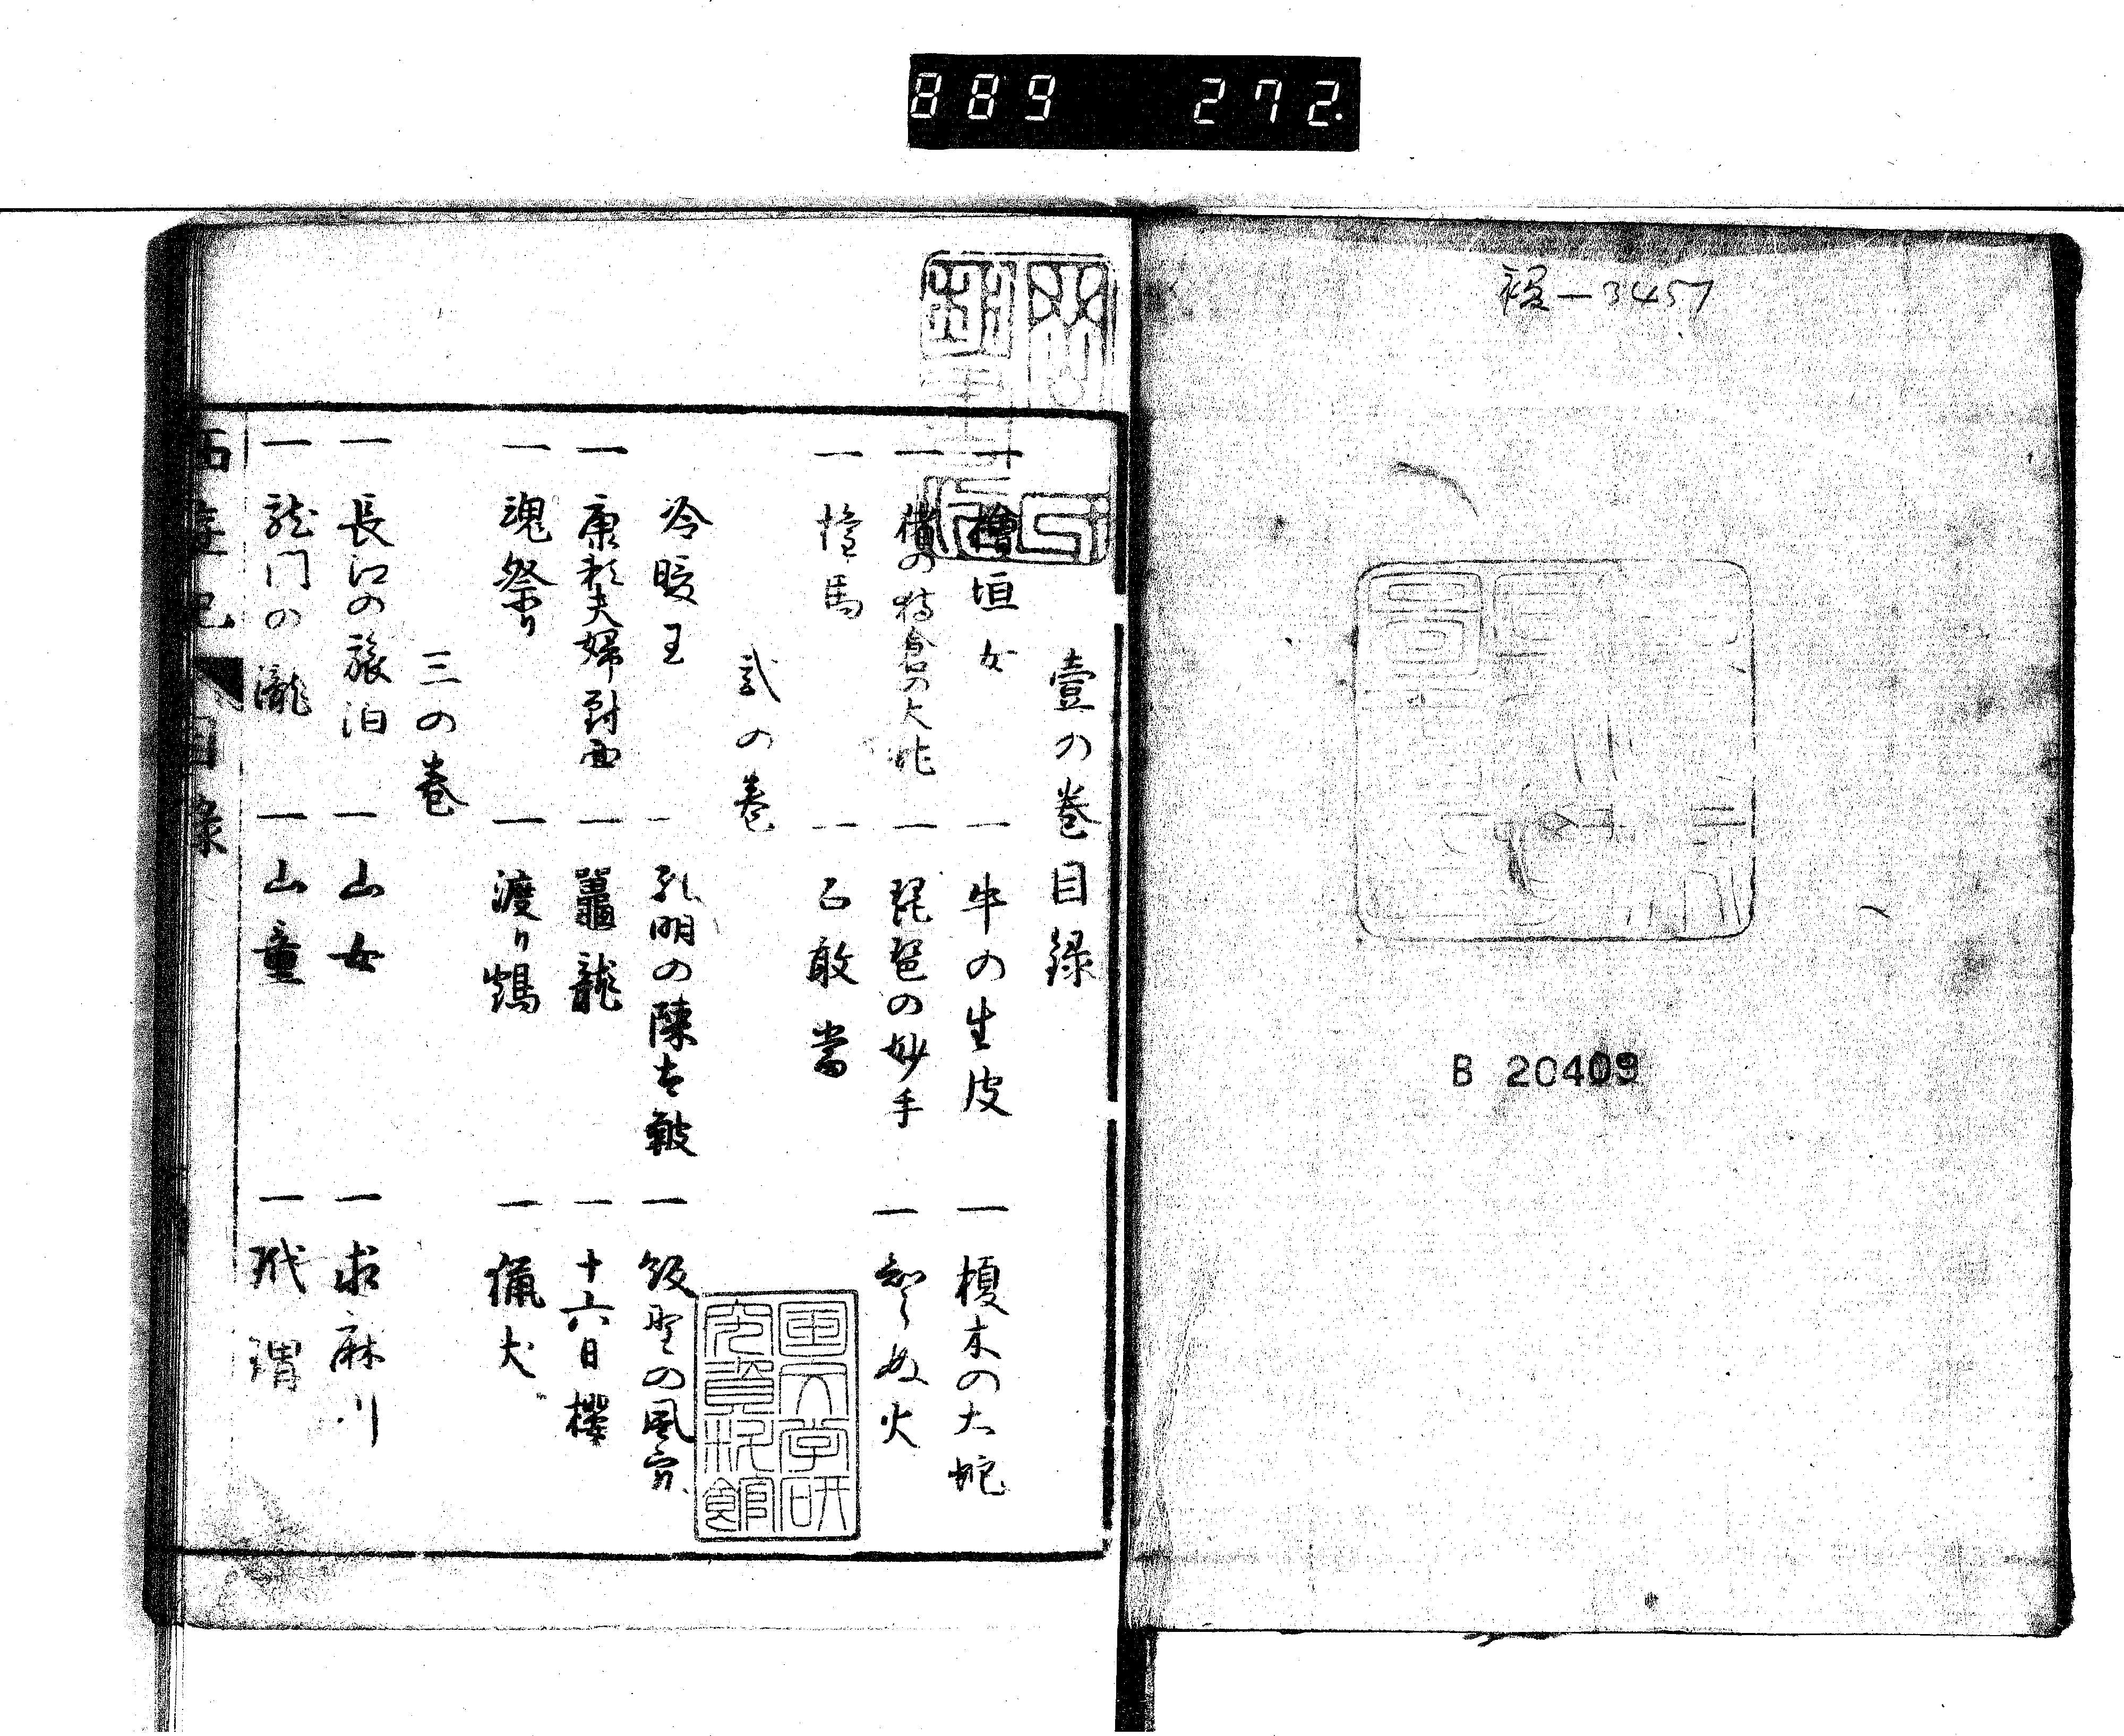 889 272
稀-3457
B 20409
壹の巻目録
一檜垣女 一牛の生皮 一榎木の大蛇
一樻の特倉の大蛇 一琵琶の妙手 一知らぬ火
一 馬 一石敢當
弐の巻
冷暖玉 一孔明の陳太皷 一飯野の風穴
一康頼夫婦対面 一鼉龍 一十六日櫻
一魂祭り 一渡り鶴 一猟犬
三の巻
一長江の旅泊 一山女 一求麻川
一龍門の瀧 一山童 一玳瑁
目録
国文学研究資料館